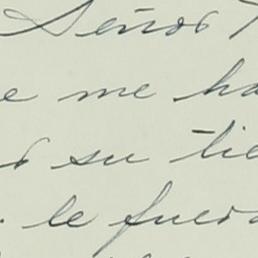 Señor
e me ha
su tie
. le fuera